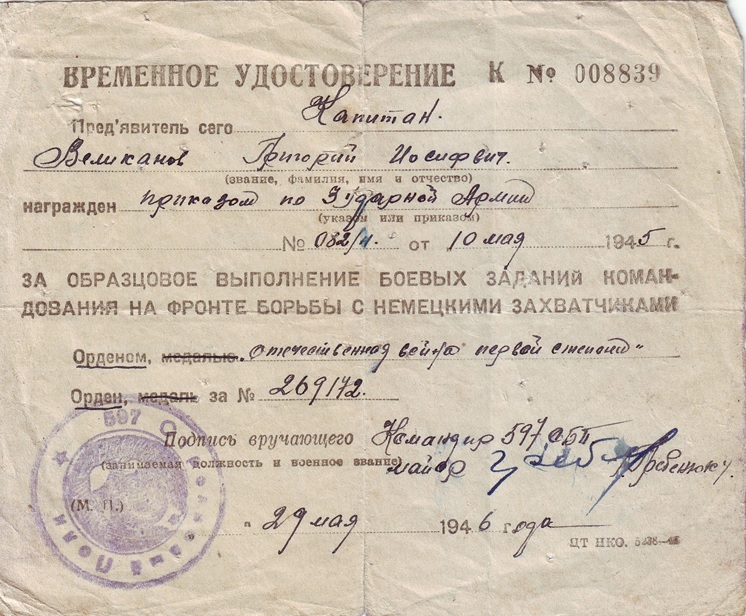 ВРЕМЕННОЕ УДОСТОВЕРЕНИЕ К № 008839
Пред'явитель сего Капитан.
Великанов Григорий Иосифвич.
(звание, фамилия, имя и отчество)
награжден приказом по 3 ударной Армии
(указом или приказом)
№ 082/н. от 10 мая 1945 г.
ЗА ОБРАЗЦОВОЕ ВЫПОЛНЕНИЕ БОЕВЫХ ЗАДАНИЙ КОМАН-
ДОВАНИЯ НА ФРОНТЕ БОРЬБЫ С НЕМЕЦКИМИ ЗАХВАТЧИКАМИ
Орденом, медалью „отечественная война первой степени"
Орден, медаль за № 269172.
597 С
Подпись вручающего Командир 597
(занимаемая должность и военное звание) майор
(М. П.)
Полк
„ 29 мая 1946 года
ЦТ НКО.